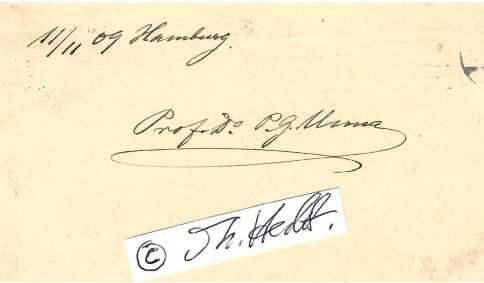 11/11 09 Hamburg.
Prof. Dr. P. G. Unna
© Th. Hecht.